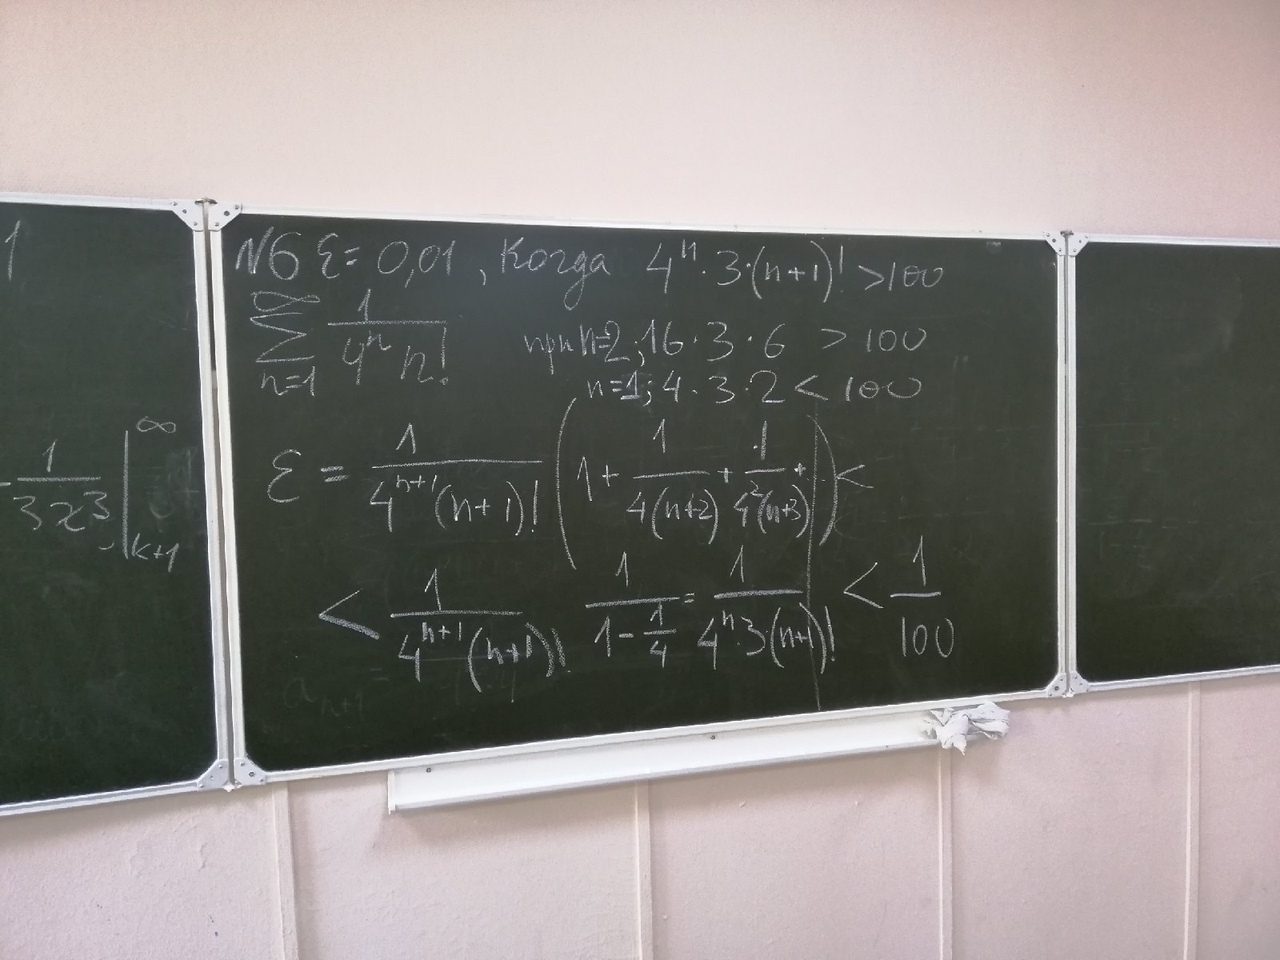 1
1/(3x³) |_{k+1}^{∞}
N6 ε = 0,01 , Когда 4ⁿ · 3 · (n+1)! > 100
∑_{n=1}^{∞} 1/(4ⁿ n!) при n=2; 16 · 3 · 6 > 100
n=1; 4 · 3 · 2 < 100
ε = 1/(4^{n+1}(n+1)!) (1 + 1/(4(n+2)) + 1/(4²(n+3)) + ) <
< 1/(4^{n+1}(n+1)!) 1/(1 - 1/4) = 1/(4ⁿ·3(n+1)!) < 1/100
a_{n+1}